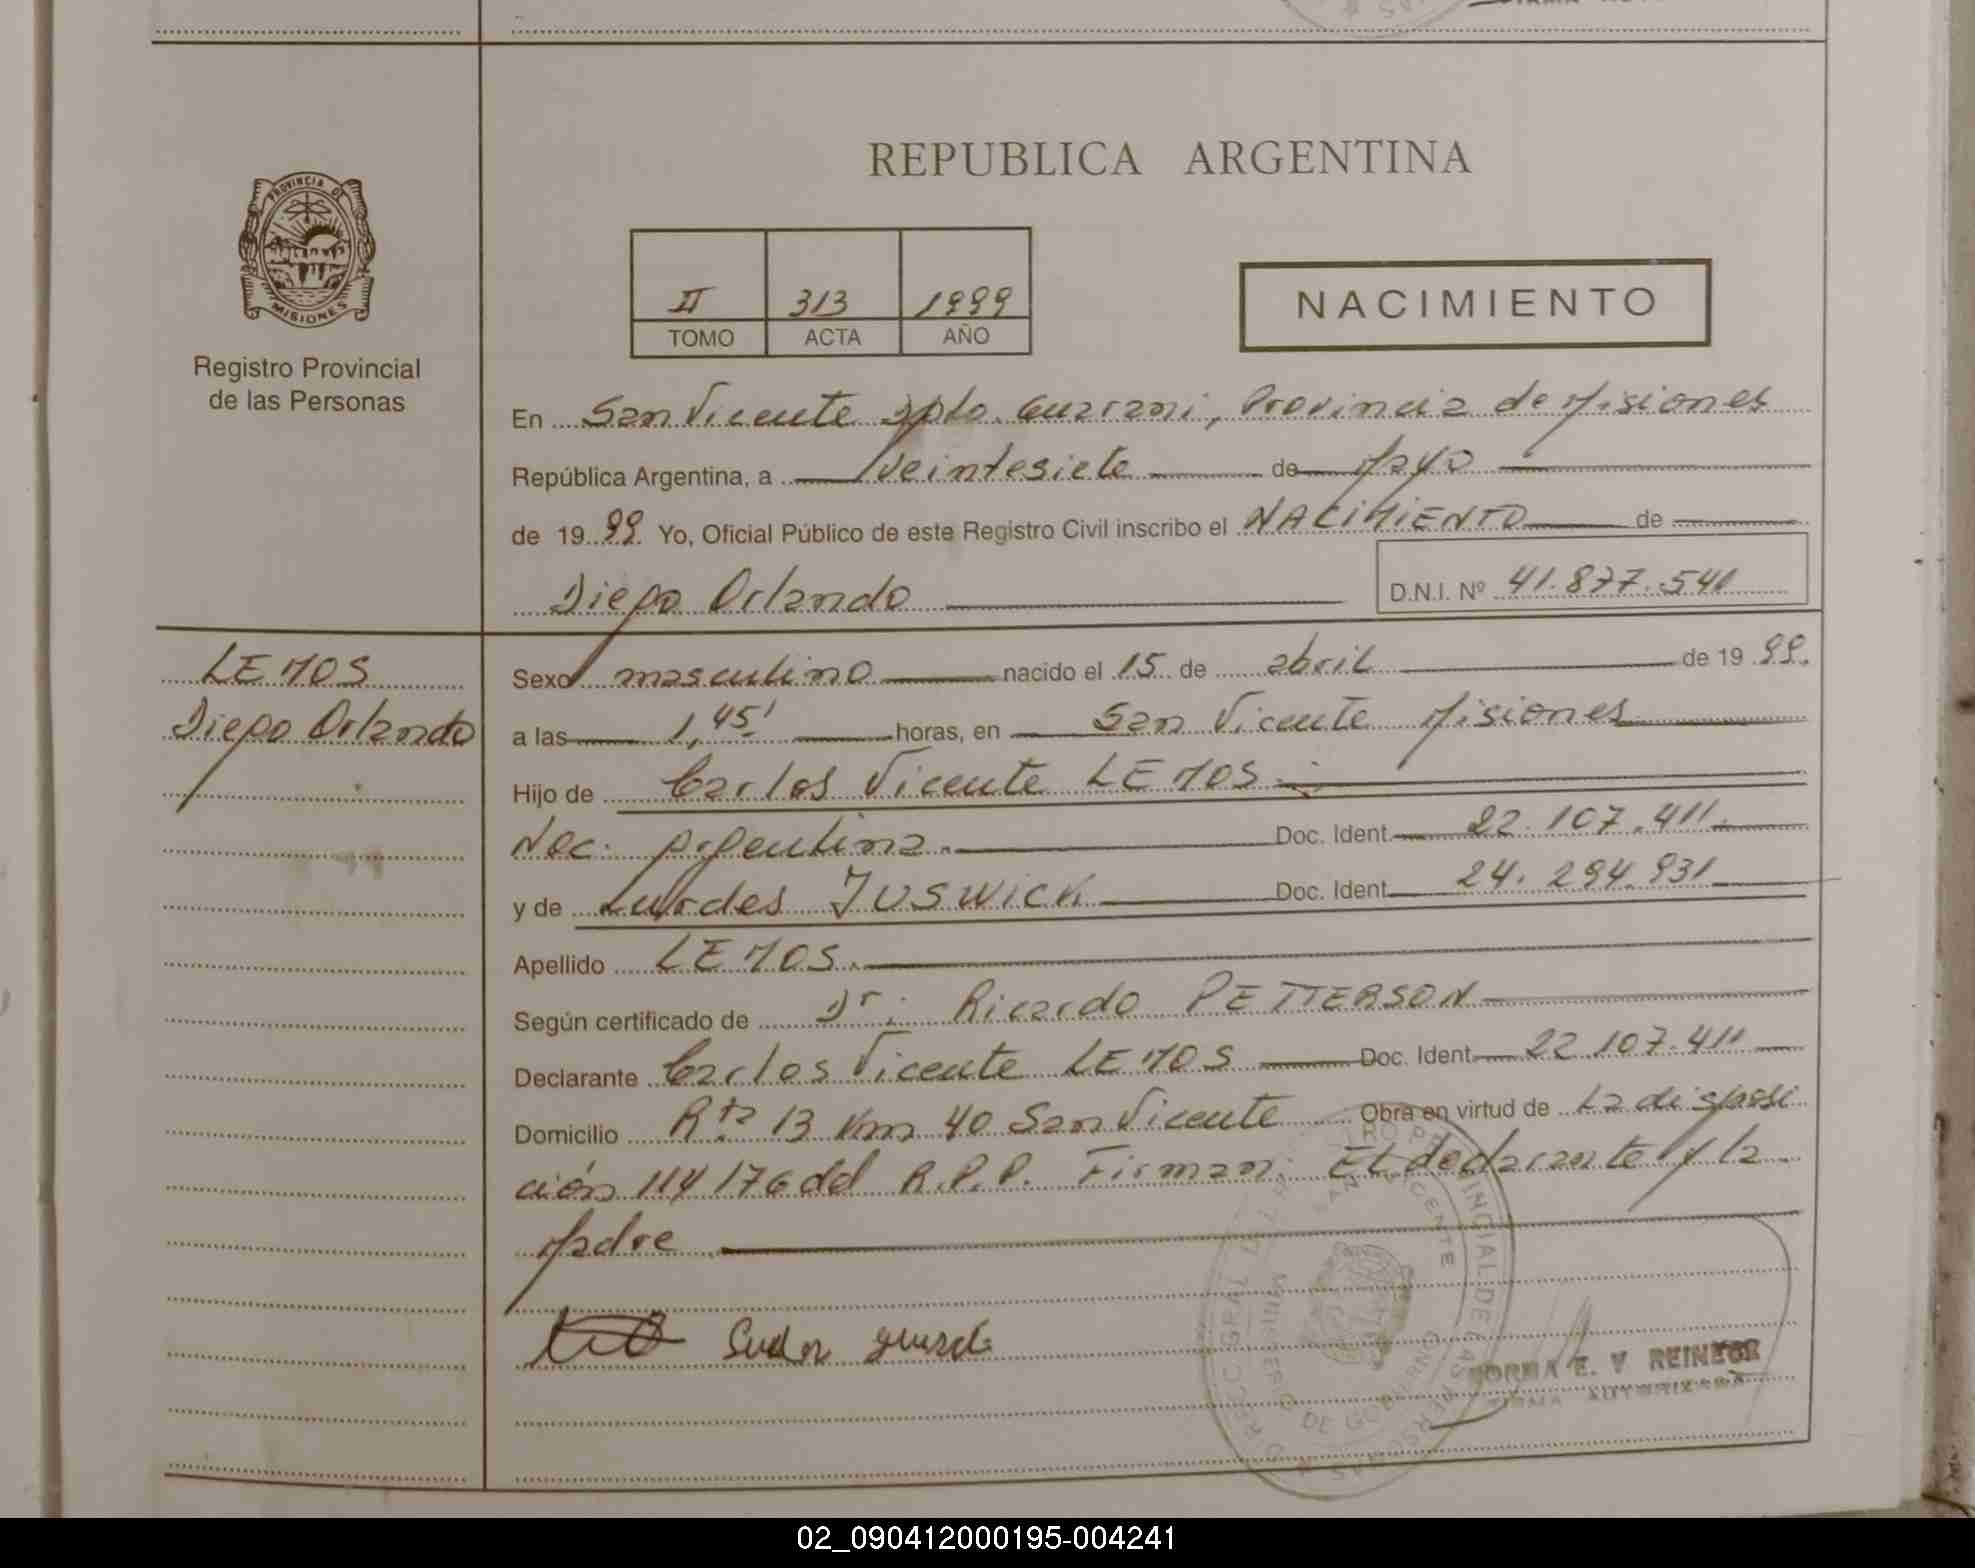 REPUBLICA ARGENTINA
PROVINCIA DE
MISIONES
Registro Provincial
de las Personas
II 313 1999
TOMO ACTA AÑO
NACIMIENTO
En San Vicente Dpto. Guarani, Provincia de Misiones
República Argentina, a veintesiete de Mayo
de 1999 Yo, Oficial Público de este Registro Civil inscribo el NACIMIENTO de
Diego Orlando D.N.I. Nº 41.877.541
LEMOS
Diego Orlando
Sexo masculino nacido el 15 de abril de 1999.
a las 1,45' horas, en San Vicente Misiones
Hijo de Carlos Vicente LEMOS
Nac. Argentina. Doc. Ident. 22.107.411.
y de Lurdes JUSWICK Doc. Ident. 24.294.931
Apellido LEMOS.
Según certificado de Dr. Ricardo PETTERSON
Declarante Carlos Vicente LEMOS Doc. Ident. 22.107.411
Domicilio Rta 13 Km 40 San Vicente Obra en virtud de La disposi
ción 114/76 del R.P.P. Firman: El declarante y la
Madre
NORMA E. V REINEGR
FIRMA AUTORIZADA
SAN VICENTE
02_090412000195-004241